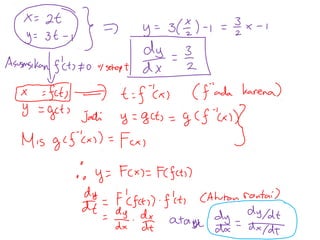 x = 2t
y = 3t - 1
⇒ y = 3(x/2) - 1 = 3/2 x - 1
dy/dx = 3/2
Asumsikan f'(t) ≠ 0 ∀ setiap t
x = f(t) ⟹ t = f⁻¹(x) (f⁻¹ ada karena)
y = g(t) Jadi y = g(t) = g(f⁻¹(x))
Mis g(f⁻¹(x)) = F(x)
∴ y = F(x) = F(f(t))
dy/dt = F'(f(t)) · f'(t) (Aturan rantai)
= dy/dx · dx/dt atau dy/dx = dy/dt / dx/dt